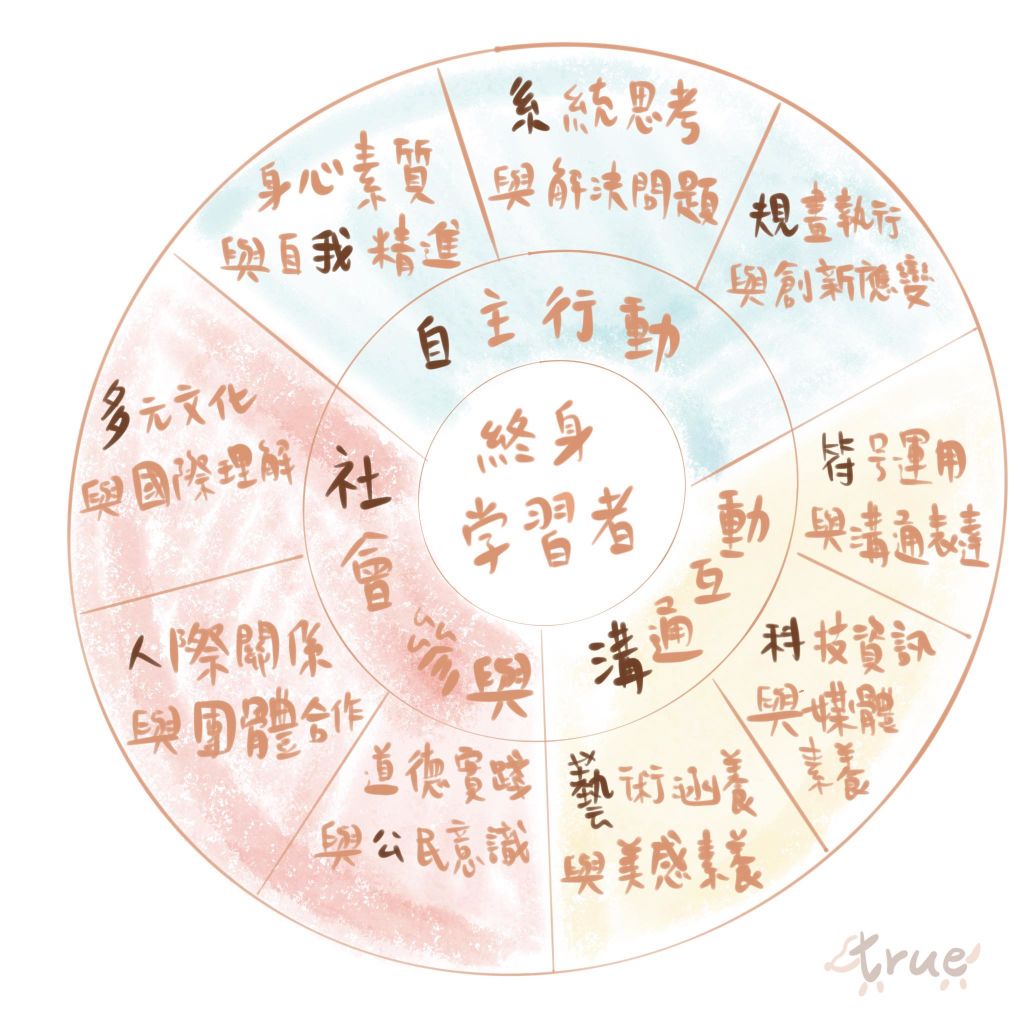 終身
学習者
自主行動
溝通互動
社會參與
身心素質
與自我精進
系統思考
與解決問題
規畫執行
與創新應變
符号運用
與溝通表達
科技資訊
與媒體
素養
藝術涵養
與美感素養
道德實踐
與公民意識
人際關係
與團體合作
多元文化
與國際理解
true